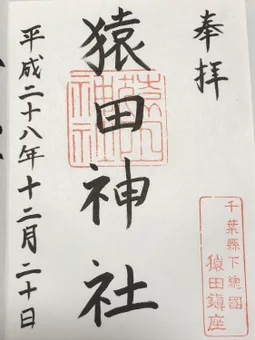 奉拝
猿田神社
猿田神社
平成二十八年十二月二十日
千葉縣下總國
猿田鎮座